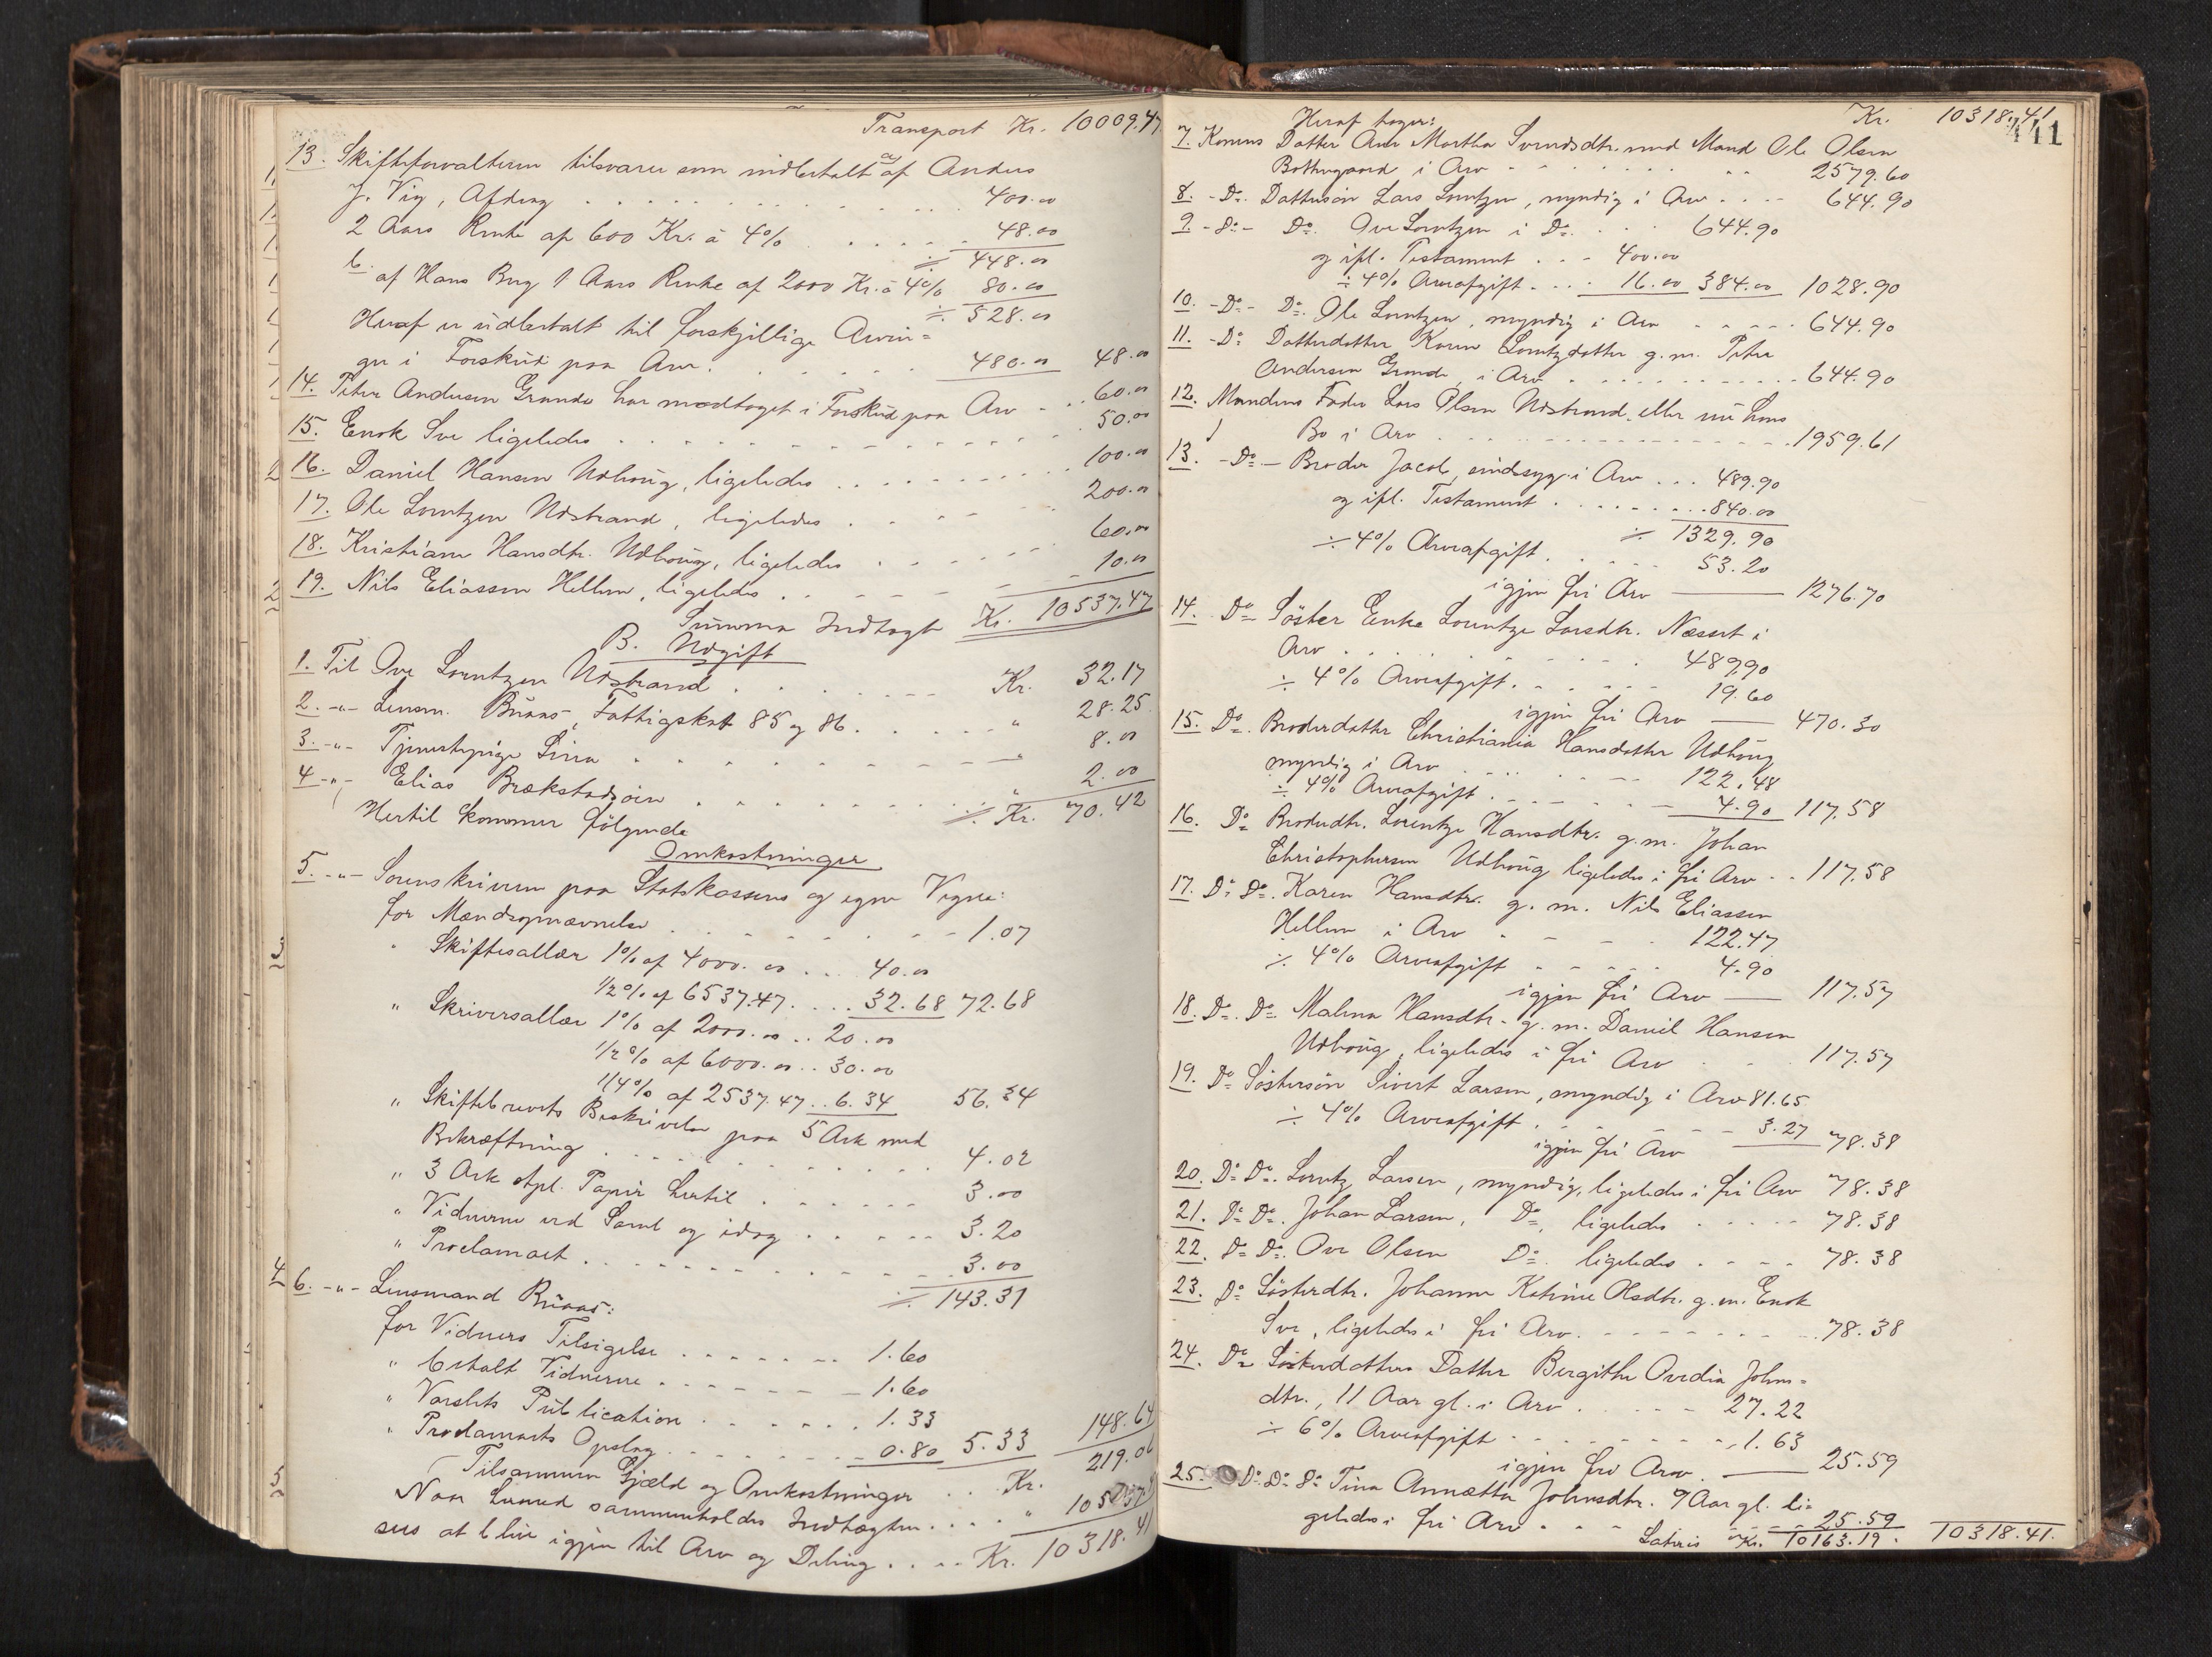 Transport Kr. 10009.47
13. Skifteforvalteren tilsvarer som indbetalt a, af Anders
J. Vig, Afdrag . . . 400.00
2 Aars Rente af 600 Kr. à 4% . . . 48.00
÷ 448.00
b. af Hans Bug 1 Aars Rente af 2000 Kr. à 4% 80.00
÷ 528.00
Heraf er udbetalt til forskjellige Arvin=
ger i Forskud paa Arv. . . . 480.00 48.00
14. Peter Andersen Grande har modtaget i Forskud paa Arv . . 60.00
15. Enok Sve ligeledes . . . 50.00
16. Daniel Hansen Udhoug, ligeledes . . . 100.00
17. Ole Lorntzen Udstrand, ligeledes . . . 200.00
18. Kristiane Hansdtr. Udhoug, ligeledes . . . 60.00
19. Nils Eliassen Hellem, ligeledes . . . 10.00
Summa Indtægt Kr. 10537.47
B. Udgift
1. Til Ove Lorntzen Udstrand . . . Kr. 32.17
2. -"- Lensm. Buaas, Fattigskat 85 og 86 . . . " 28.25
3. -"- Tjenestepige Lina . . . " 8.00
4 -"- Elias Brækstadøien . . . " 2.00
Hertil kommer følgende ÷ Kr. 70.42
Omkostninger
5. -"- Sorenskriveren paa Statskassens og egne Vegne:
for Mændsopnævnelse . . . 1.07
" Skiftesallær 1% af 4000.00 . . . 40.00
1/2% af 6537.47 . . . 32.68 72.68
" Skriversallær 1% af 2000.00 . . 20.00
1/2% af 6000.00 . . 30.00
1/4% af 2537.47 . . 6.34 56.34
" Skiftebrevets Beskrivelse paa 5 Ark med
Bekræftning . . . 4.02
" 3 Ark stpl. Papir hertil . . . 3.00
" Vidnerne ved Saml og idag . . . 3.20
" Proclamaet . . . 3.00
÷ 143.31
6. -"- Lensmand Buaas:
for Vidners Tilsigelse . . . 1.60
" betalt Vidnerne . . . 1.60
" Varslets Publication . . . 1.33
" Proclamaets Opslag . . . 0.80 5.33 148.64
Tilsammen Gjæld og Omkostninger . . Kr. 219.06
Naar hermed sammenholdes Indtægten . . . " 10537.47
sees at blive igjen til Arv og Deling . . . Kr. 10318.41
441
Heraf tager: Kr. 10318.41
7. Konens Datter Ane Martha Svendsdtr. med Mand Ole Olsen
Bothngaard i Arv . . . 2579.60
8. -Do. Dattersøn Lars Lorntzen, myndig i Arv . . . 644.90
9. -Do- Do. Ove Lorntzen i Do. . . . 644.90
og ifl. Testament . . . 400.00
÷ 4% Arveafgift . . . 16.00 384.00 1028.90
10. -Do- Do. Ole Lorntzen, myndig i Arv . . . 644.90
11. -Do Datterdatter Karen Lorntzdatter g. m. Peter
Andersen Grande, i Arv . . . 644.90
12. Mandens Fader Lars Olsen Udstrand, eller nu hans
Bo i Arv . . . 1959.61
13. -Do- Broder Jacob, sindssyg i Arv . . . 489.90
og ifl. Testament . . . 840.00
÷ 1329.90
÷ 4% Arveafgift . . . 53.20
igjen fri Arv 1276.70
14. Do Søster Enke Lorentze Larsdtr. Næsset i
Arv . . . 489.90
÷ 4% Arveafgift . . . 19.60
igjen fri Arv 470.30
15. Do. Broderdatter Christiania Hansdatter Udhoug
myndig i Arv . . . 122.48
÷ 4% Arveafgift . . . 4.90 117.58
16. Do Broderdtr. Lorentze Hansdtr. g. m. Johan
Christophersen Udhoug ligeledes i fri Arv . . 117.58
17. Do Do. Karen Hansdtr. g. m. Nils Eliassen
Hellem i Arv . . . 122.47
÷ 4% Arveafgift . . . 4.90
igjen fri Arv 117.57
18. Do. Do. Malena Hansdtr. g. m. Daniel Hansen
Udhoug, ligeledes i fri Arv . . . 117.57
19. Do Søstersøn Sivert Larsen, myndig i Arv 81.65
÷ 4% Arveafgift . . . 3.27 78.38
igjen fri Arv
20. Do Do. Lorntz Larsen, myndig, ligeledes i fri Arv 78.38
21. Do Do. Johan Larsen, Do, ligeledes . . . 78.38
22. Do Do. Ove Olsen Do. ligeledes . . . 78.38
23. Do Søsterdtr. Johanna Katrine Olsdtr. g. m. Enok
Sve, ligeledes i fri Arv . . . 78.38
24. Do Søsterdatters Datter Bergithe Ovedia Johns=
dtr., 11 Aar gl. i Arv . . . 27.22
÷ 6% Arveafgift . . . 1.63
igjen fri Arv 25.59
25. Do Do Do Tina Annætta Johnsdtr. 7 Aar gl. li=
geledes i fri Arv . . . 25.59
Lateris Kr. 10163.19. 10318.41.